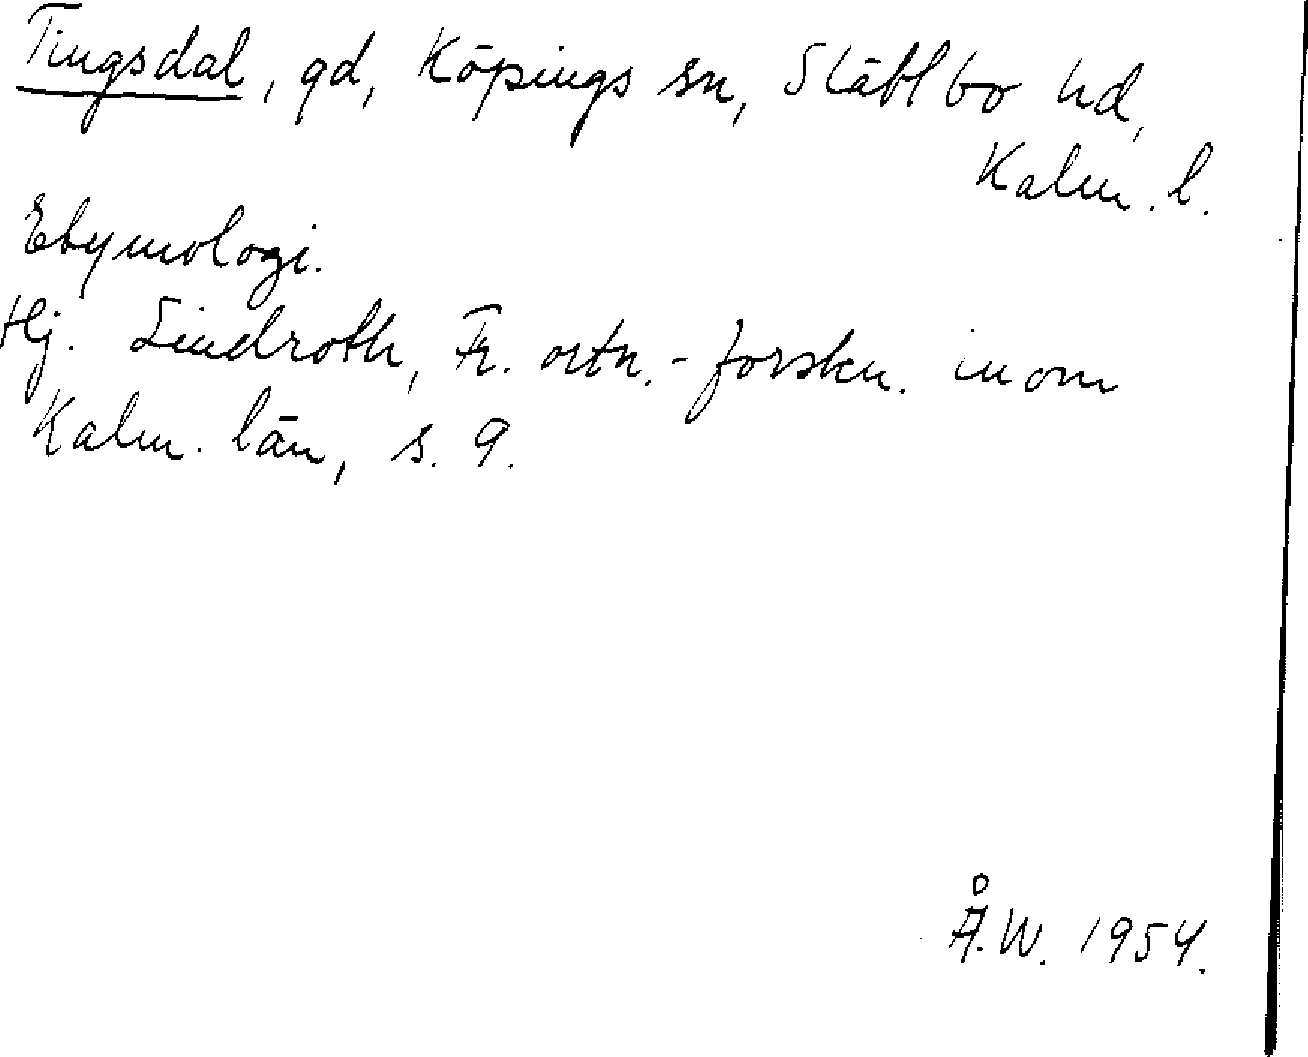 Tingsdal, gd, Köpings sn, Slättbo hd,
Kalm. l.
Etymologi.
Hj. Lindroth, Fr. ortn.-forskn. inom
Kalm. län, s. 9.
Å.W. 1954.